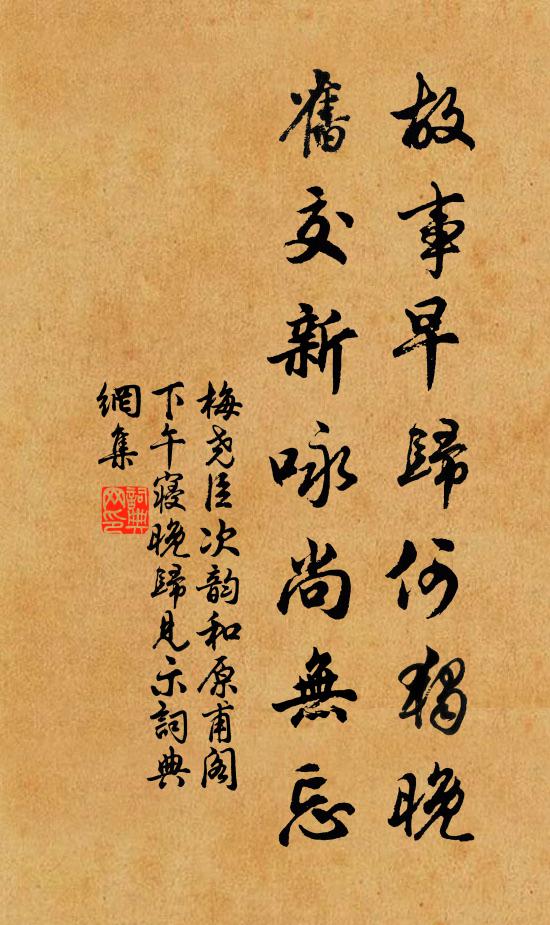 故事早歸何獨晚
舊交新咏尚無忘
梅堯臣次韵和原甫阁
下午寝晚歸見示詞典
網集
詞典
网印